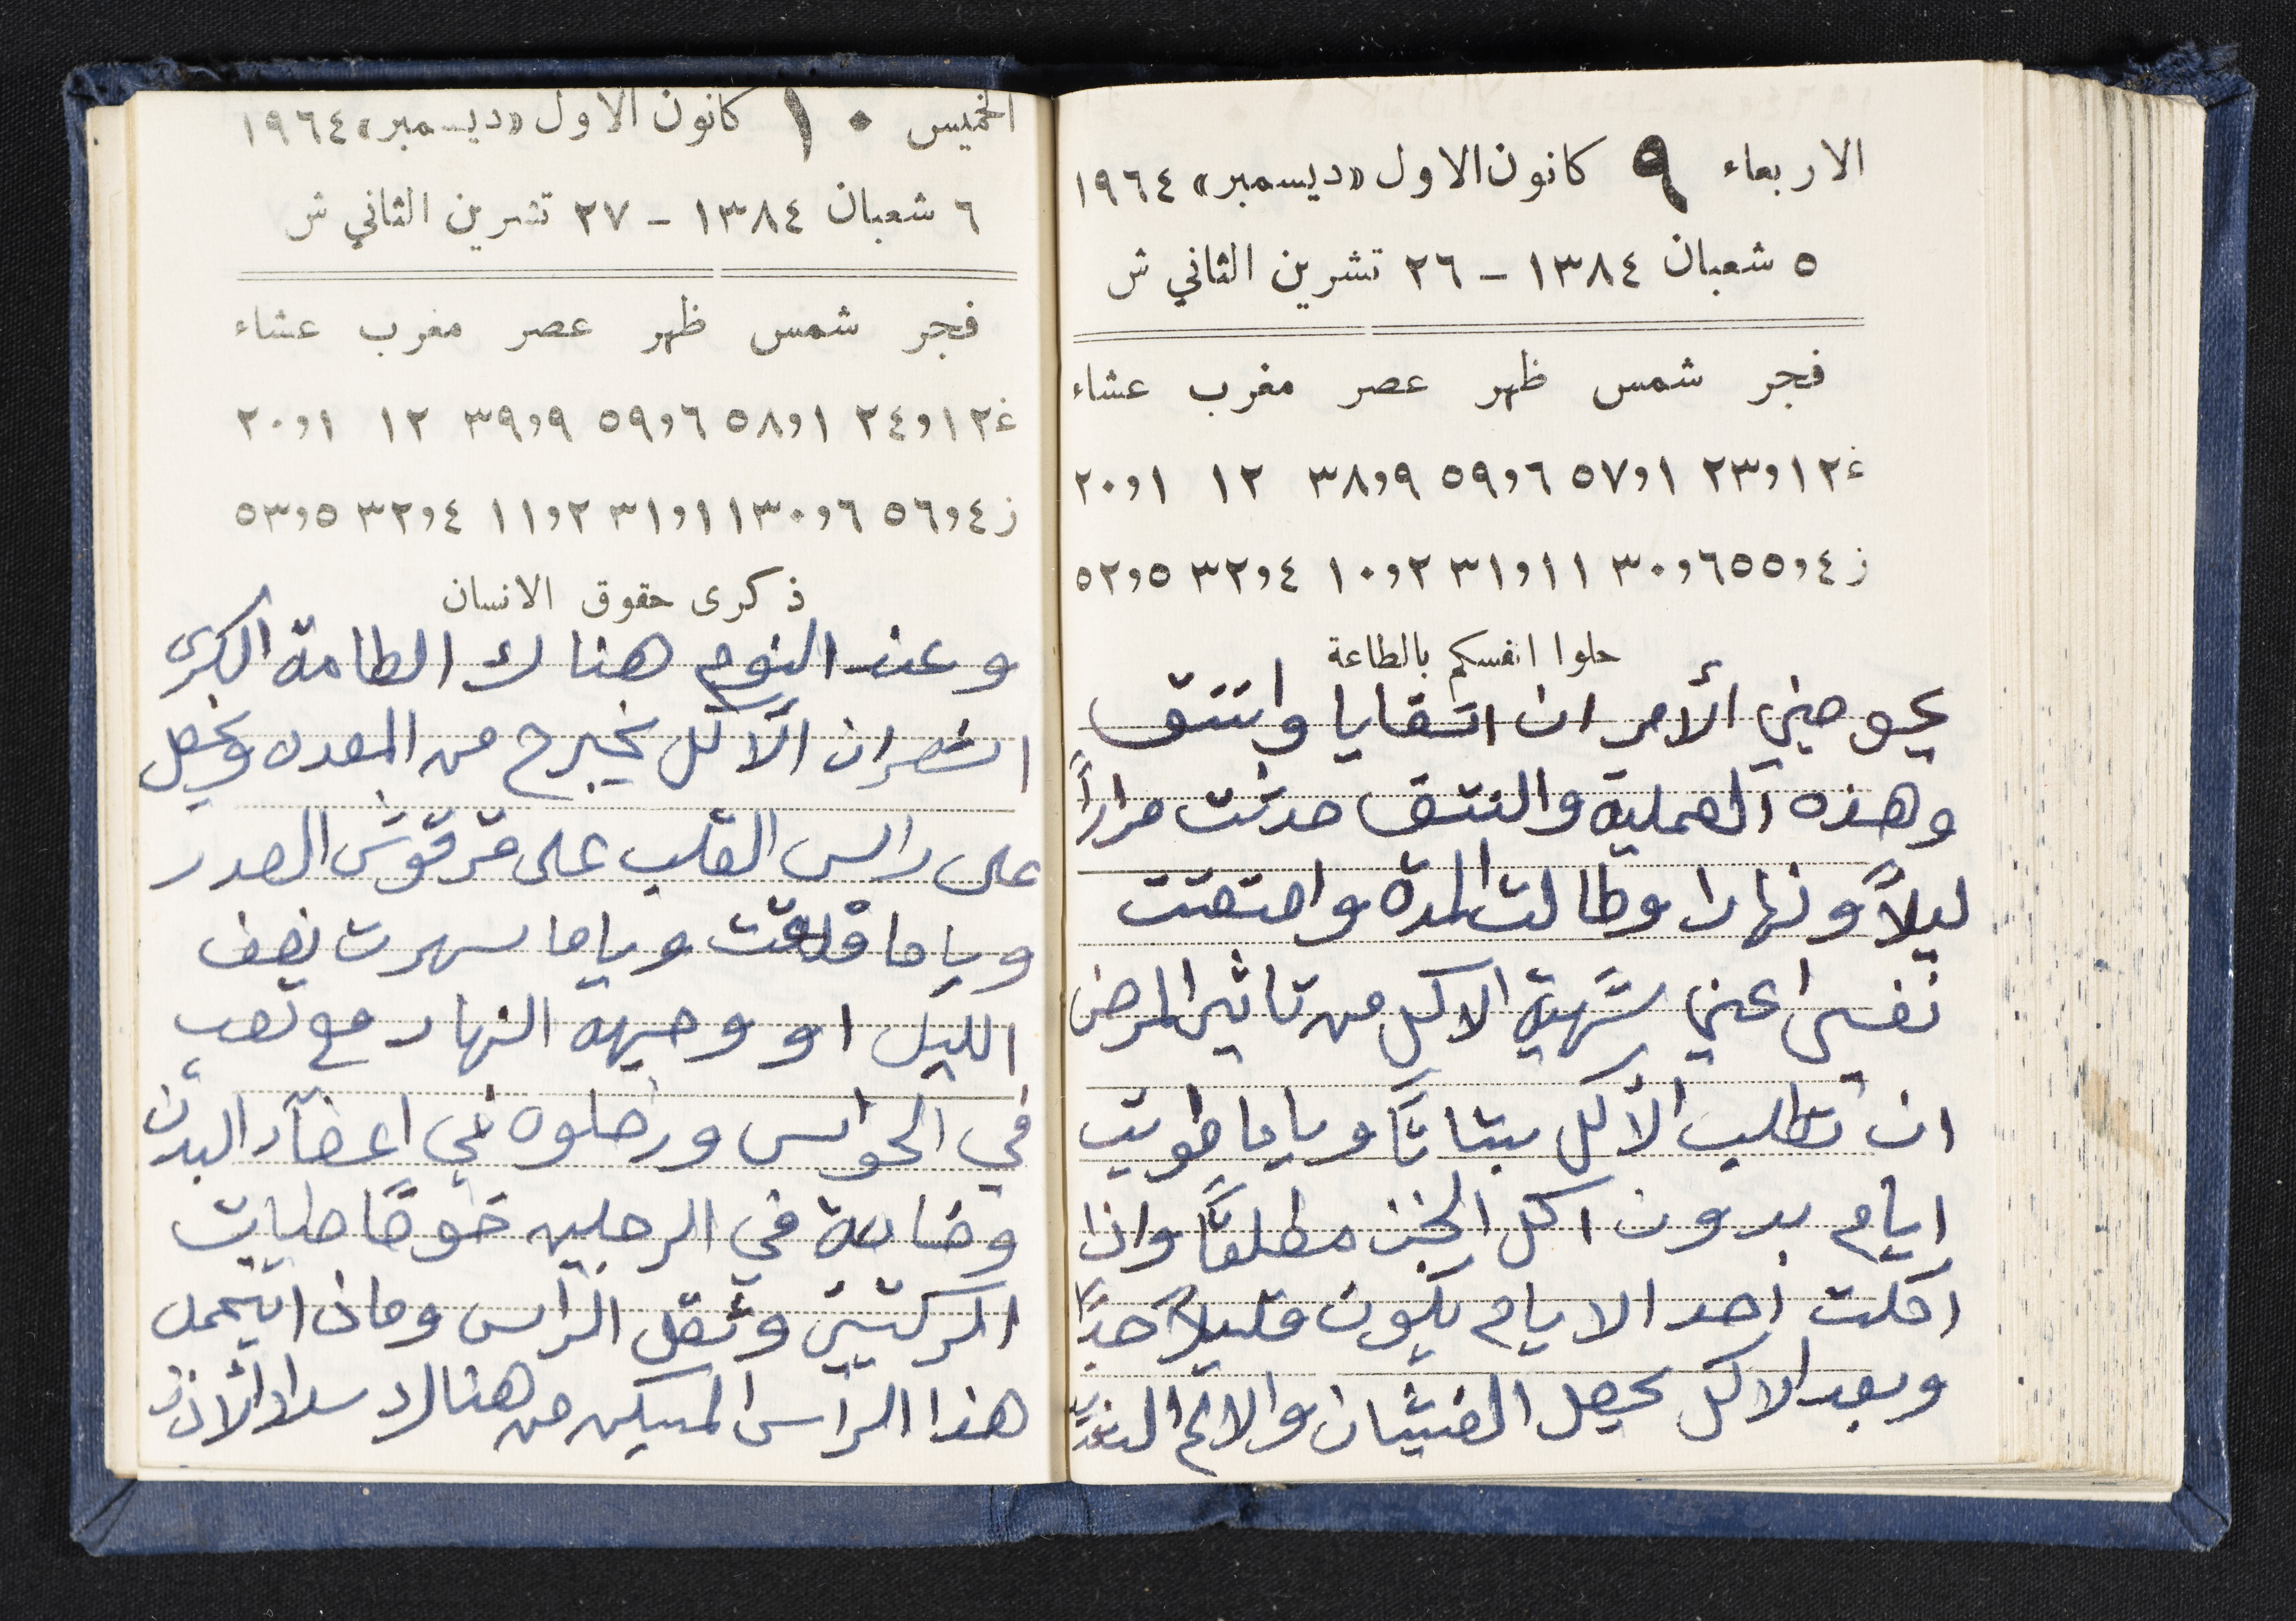 الاربعاء ٩ كانون الاول «ديسمبر» ١٩٦٤
٥ شعبان ١٣٨٤ – ٢٦ تشرين الثاني ش
فجر شمس ظهر عصر مغرب عشاء
غ ١٢و٢٣ ١و٥٧ ٦و٥٩ ٩و٣٨ ١٢ ١و٢٠
ز ٤و٥٥ ٦و٣٠ ١١و٣١ ٢و١٠ ٤و٣٢ ٥و٥٢
حلوا انفسكم بالطاعة
يحوجني الأمر ان اتقايا وانتتق
وهذه العملية والنتق حدثت مراراً
ليلاً ونهارا وطالت المدة وامتقتت
نفسي اعني شهية الاكل من تاثير المرض
ان تطلب الأكل بتاتاً وياما طويت
ايام بدون اكل الخبز مطلقاً واذا
اكلت احد الايام يكون قليلاً جداً
وبعد الاكل يحصل الغثيان والالم الشديد
الخميس ١٠ كانون الاول «ديسمبر» ١٩٦٤
٦ شعبان ١٣٨٤ – ٢٧ تشرين الثاني ش
فجر شمس ظهر عصر مغرب عشاء
غ ١٢و٢٤ ١و٥٨ ٦و٥٩ ٩و٣٩ ١٢ ١و٢٠
ز ٤و٥٦ ٦و٣٠ ١١و٣١ ٢و١١ ٤و٣٢ ٥و٥٣
ذكرى حقوق الانسان
وعند النوم هناك الطامة الكبرى
اشعر ان الآكل يخبرج من المعده ويحصل
على راس القلب على قرقوش الصدر
وياما قلقت وياما سهرت نصف
الليل او وجيهة النهار مع تعب
في الحواس ورخلوه في اعضآء البدن
وضابة في الرجلين خوصًا طيات
الركبتين وثقل الراس وماذا يتحمل
هذا الراس المسكين من هناك سداد الأذن